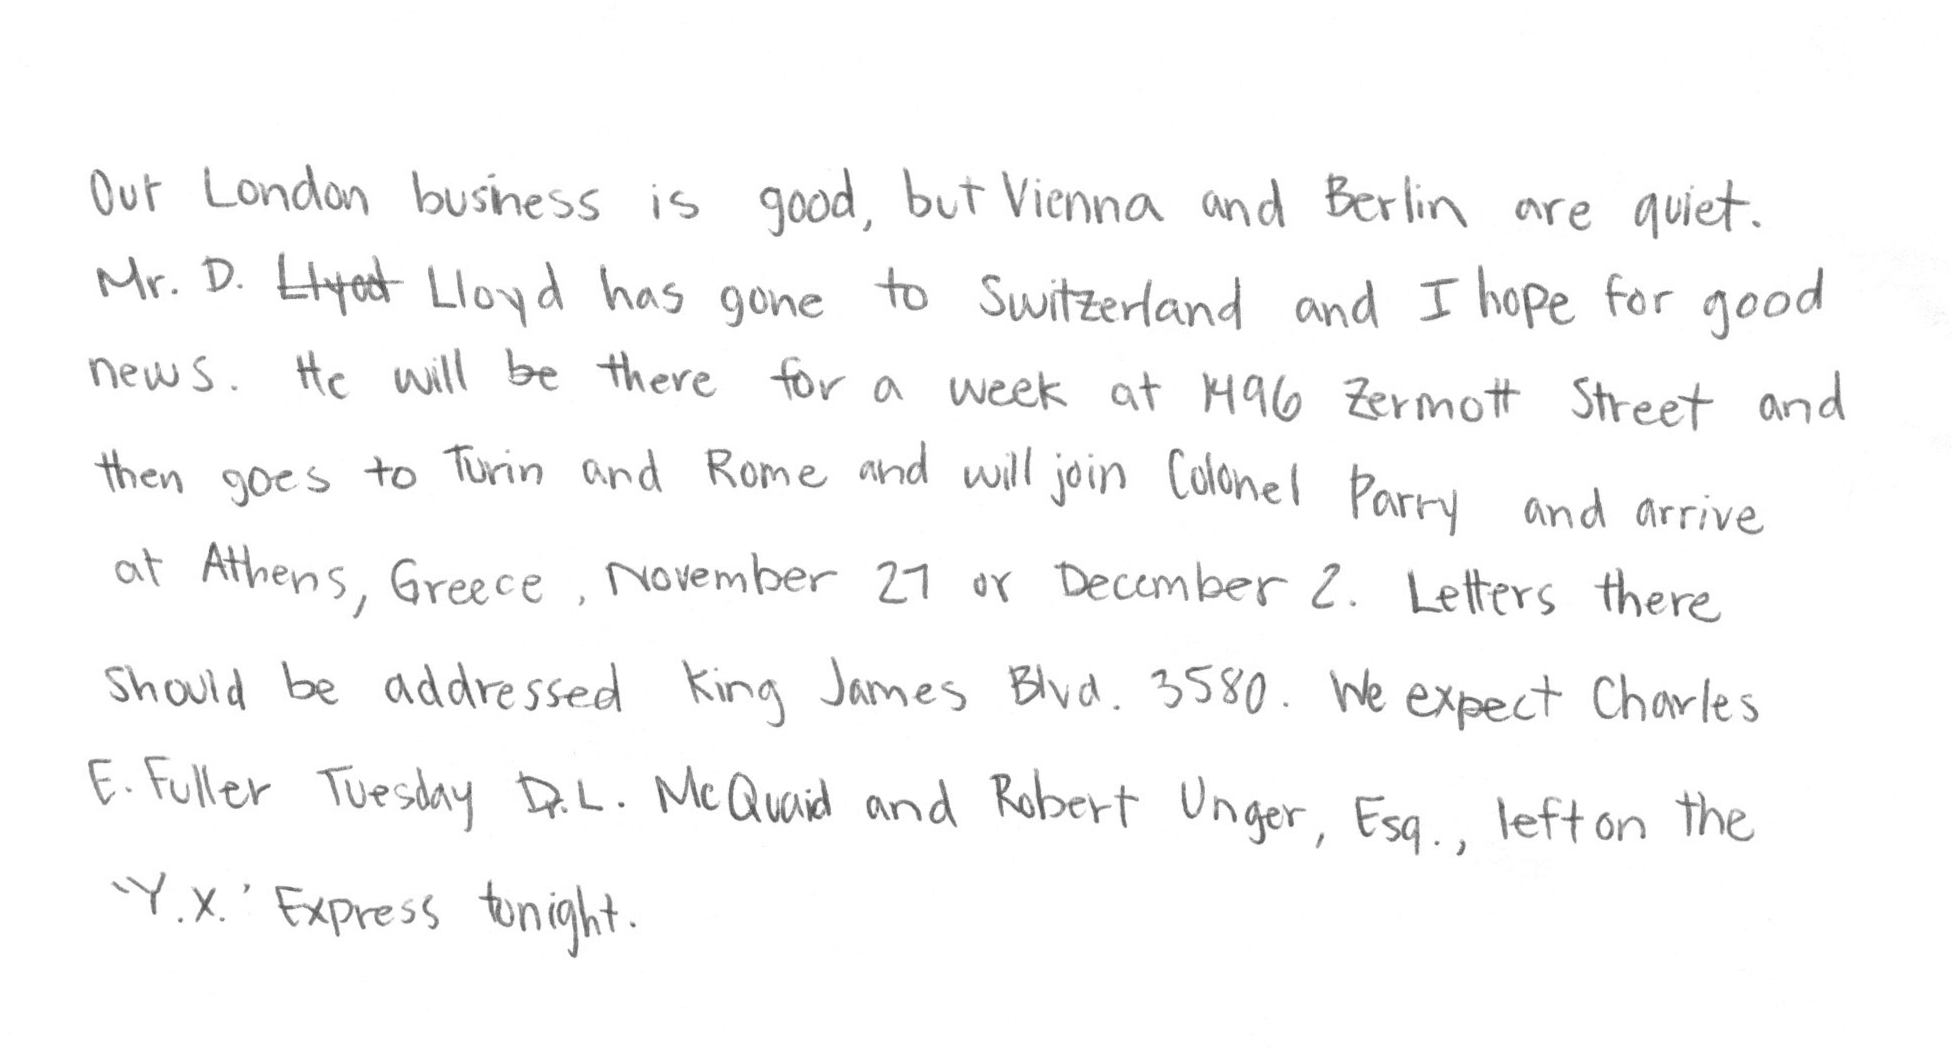 Our London business is good, but Vienna and Berlin are quiet.
Mr. D. Lloyd has gone to Switzerland and I hope for good
news. He will be there for a week at 1496 Zermott Street and
then goes to Turin and Rome and will join Colonel Parry and arrive
at Athens, Greece, November 27 or December 2. Letters there
should be addressed King James Blvd. 3580. We expect Charles
E. Fuller Tuesday Dr. L. McQuaid and Robert Unger, Esq., left on the
"Y.X.' Express tonight.